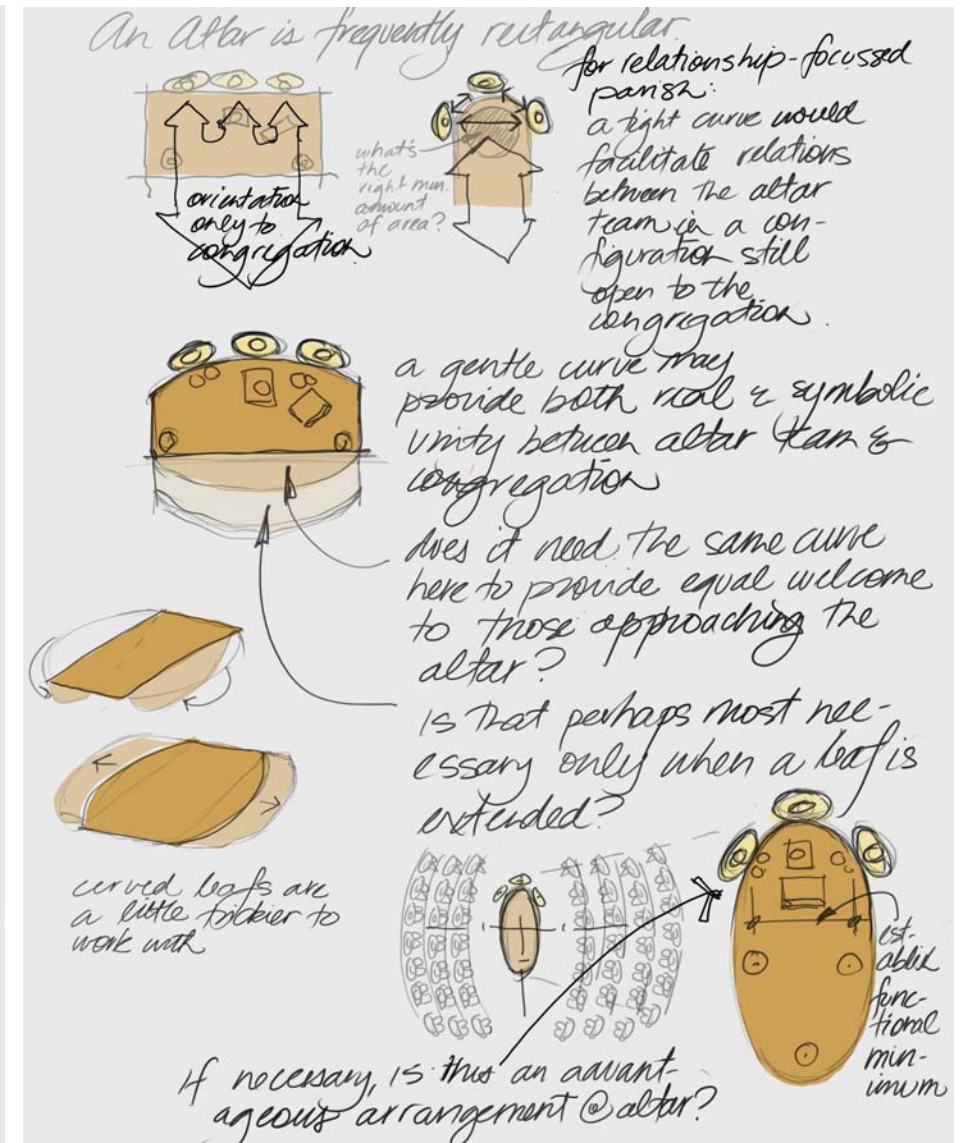 An Altar is frequently rectangular.
orientation
only to
congregation
what's
the
right min.
amount
of area?
for relationship-focussed
parish:
a tight curve would
facilitate relations
between the altar
team in a con-
figuration still
open to the
congregation.
a gentle curve may
provide both real & symbolic
unity between altar team &
congregation
does it need the same curve
here to provide equal welcome
to those approaching the
altar?
is that perhaps most nec-
essary only when a leaf is
extended?
curved leafs are
a little trickier to
work with
est-
ablish
func-
tional
min-
imum
if necessary, is this an advant-
ageous arrangement @ altar?